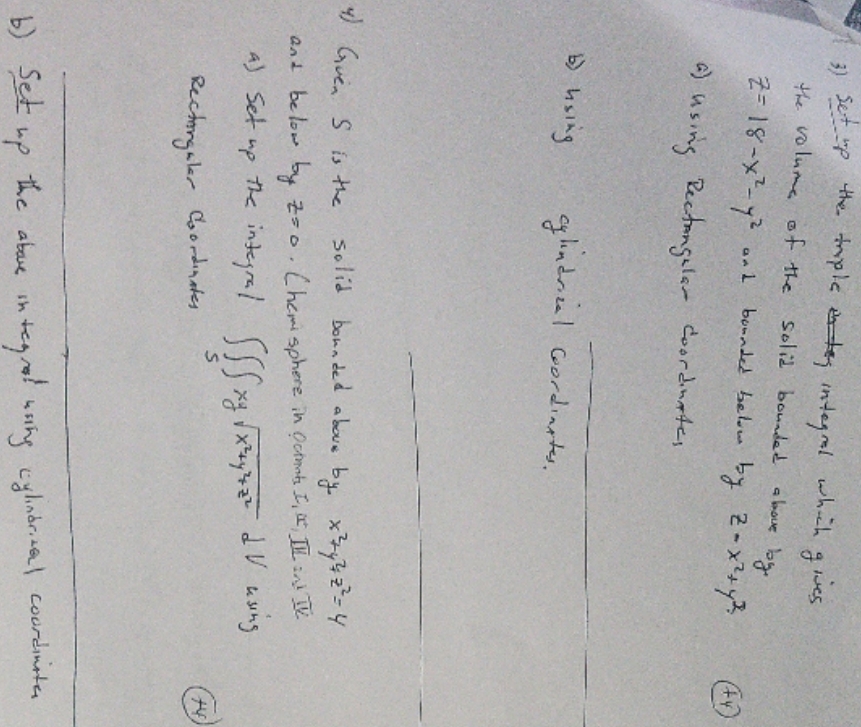 3) Set up the triple integral which gives
the volume of the solid bounded above by
z = 18 - x² - y² and bounded below by z = x² + y².
a) using Rectangular Coordinates
(+4)
b) using cylindrical coordinates.
4) Given S is the solid bounded above by x²+y²+z²=4
and below by z=0. (hemisphere in Octants I, II, III and IV
a) Set up the integral ∫∫∫_S xy √x²+y²+z² dV using
Rectangular Coordinates
(+4)
b) Set up the above integral using cylindrical coordinates